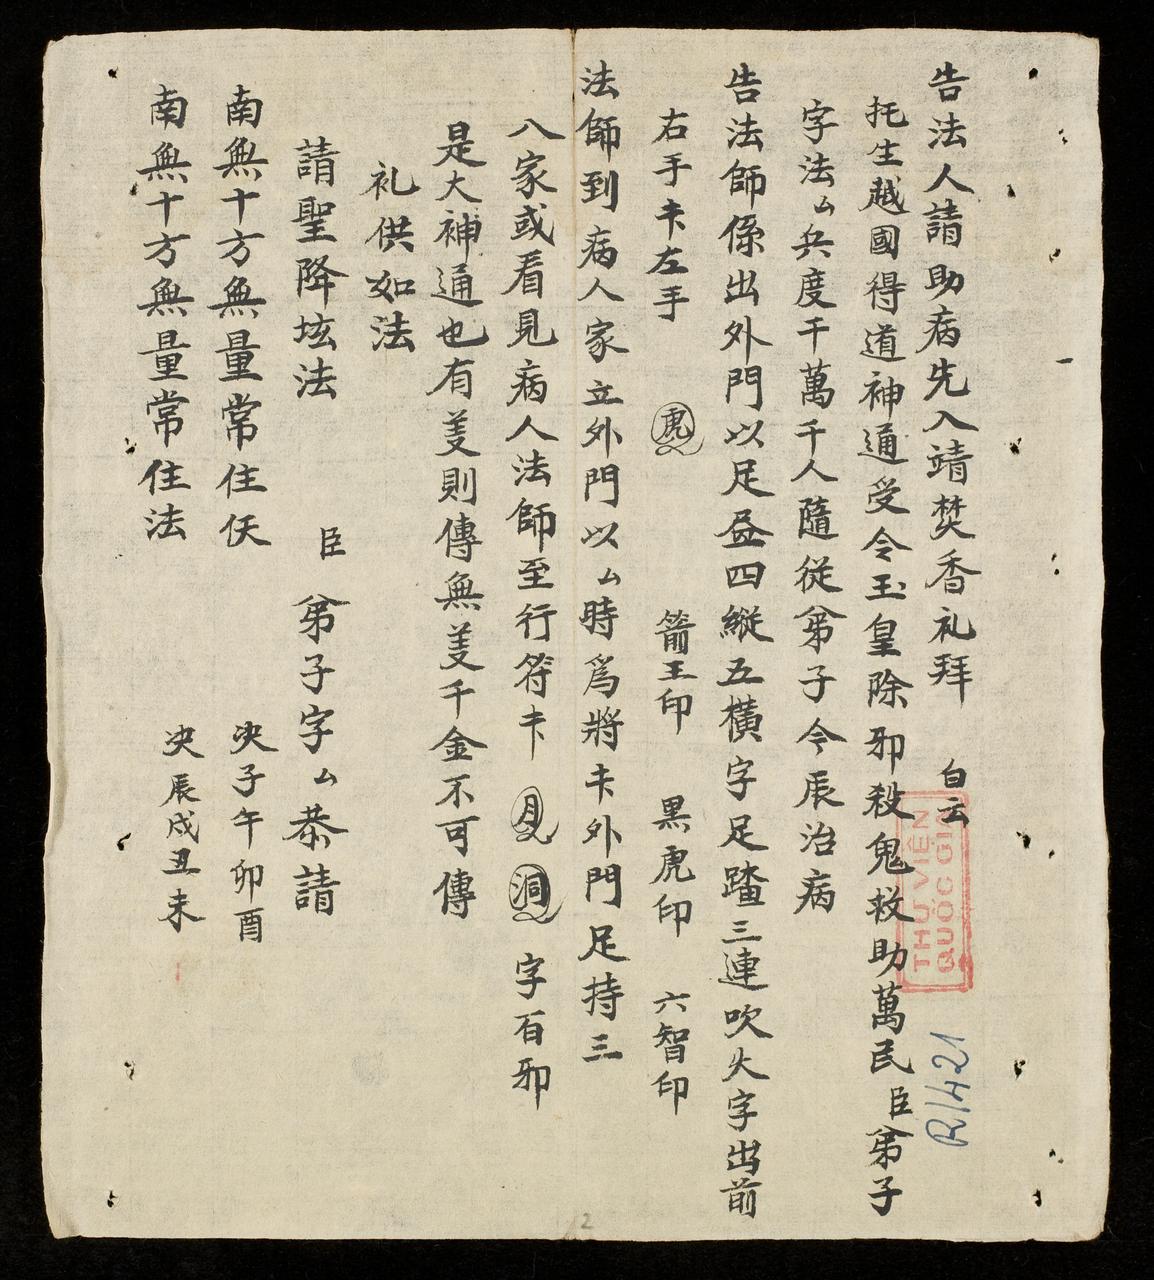 告法人請助病先入靖焚香礼拜 白云
托生越國得道神通受令玉皇除邪殺鬼救助萬民臣弟子
字法厶兵度千萬千人隨從弟子令辰治病
告法師係出外門以足𫝆四縱五橫字足踏三連吹火字出前
右手卡左手 虎 箭王印 黑虎印 六智印
法師到病人家立外門以厶時爲將卡外門足持三
八家或看見病人法師至行符卡 月 洞 字百邪
是大神通也有𦍌則傳無𦍌千金不可傳
礼供如法
請聖降坛法 臣 弟子字厶恭請
南無十方無量常住仸 决子午卯酉
南無十方無量常住法 决辰戌丑未
THƯ VIỆN
QUỐC GIA
R1421
2